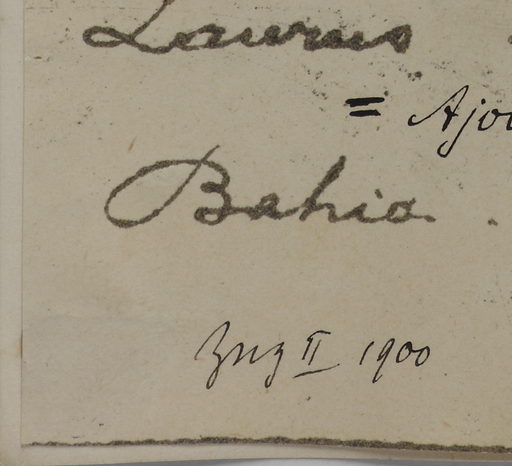 Laurus
= Ajo
Bahia.
II 1900